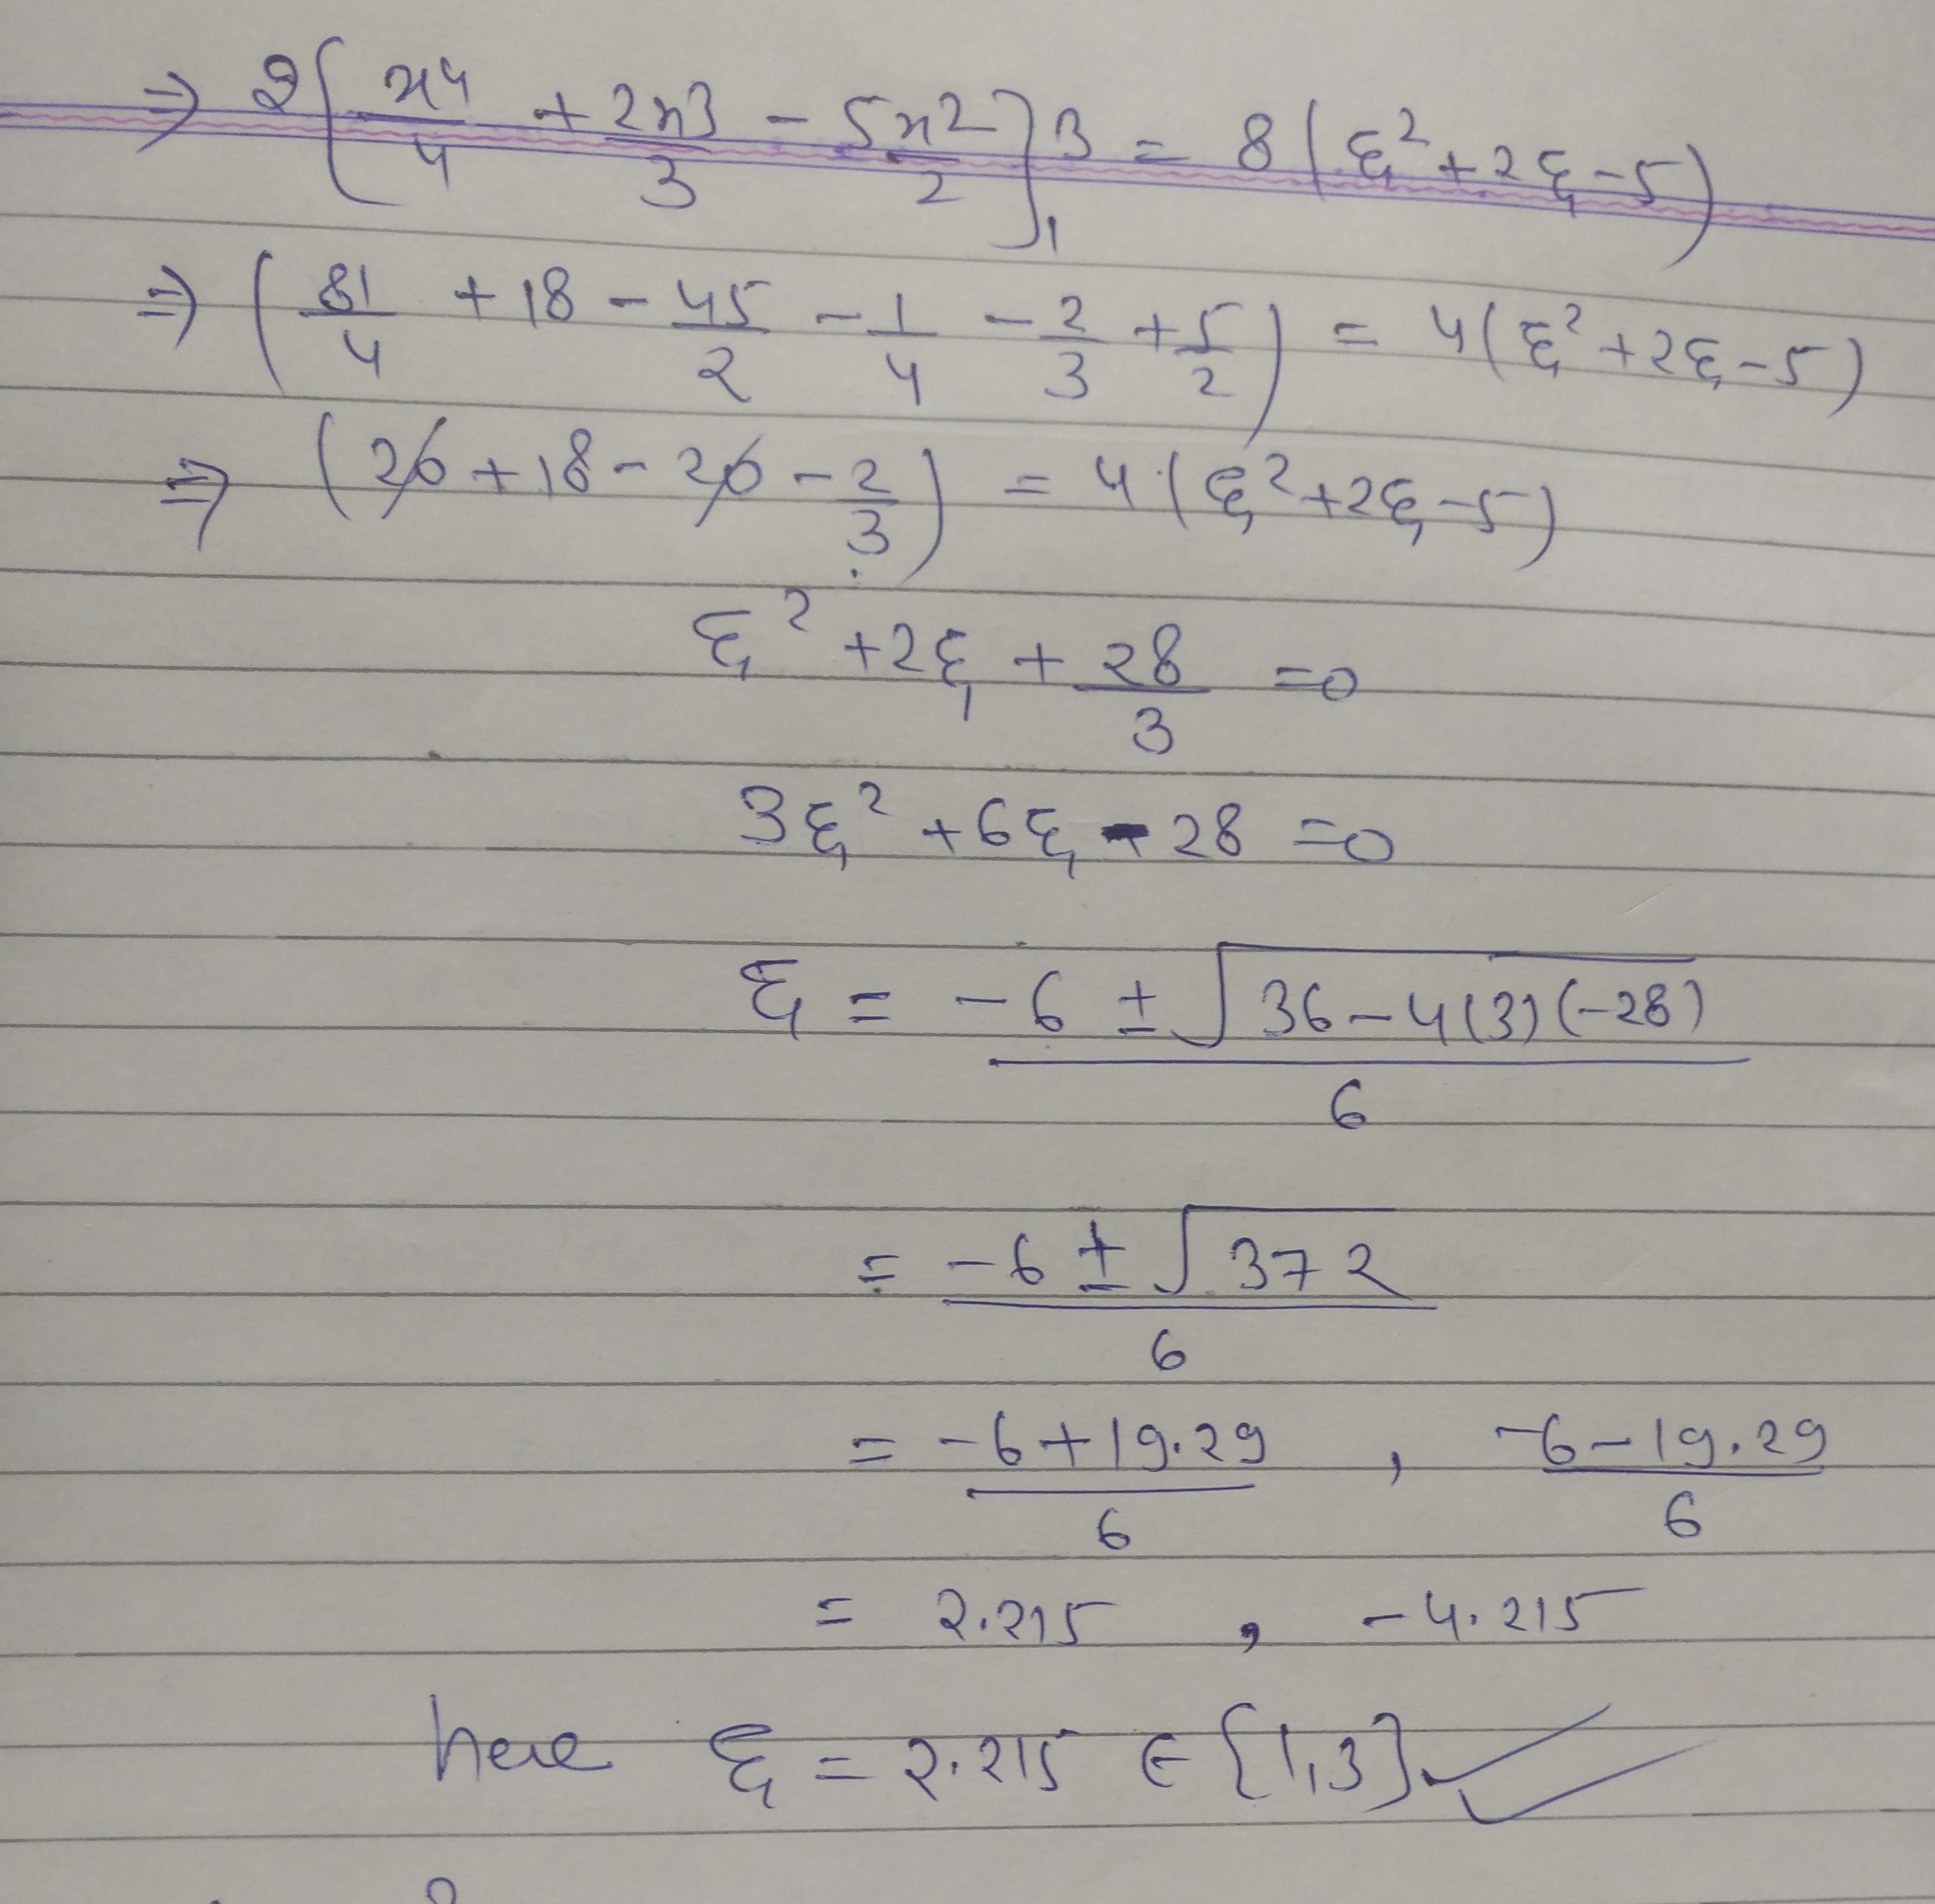 ⇒ 2[x⁴/4 + 2x³/3 - 5x²/2]₁³ = 8(ξ²+2ξ-5)
⇒ (81/4 + 18 - 45/2 - 1/4 - 2/3 + 5/2) = 4(ξ²+2ξ-5)
⇒ (20 + 18 - 20 - 2/3) = 4(ξ²+2ξ-5)
ξ² + 2ξ + 28/3 = 0
3ξ² + 6ξ - 28 = 0
ξ = (-6 ± √(36-4(3)(-28)))/6
= (-6 ± √372)/6
= (-6+19.29)/6 , (-6-19.29)/6
= 2.215 , -4.215
here ξ = 2.215 ∈ [1,3]